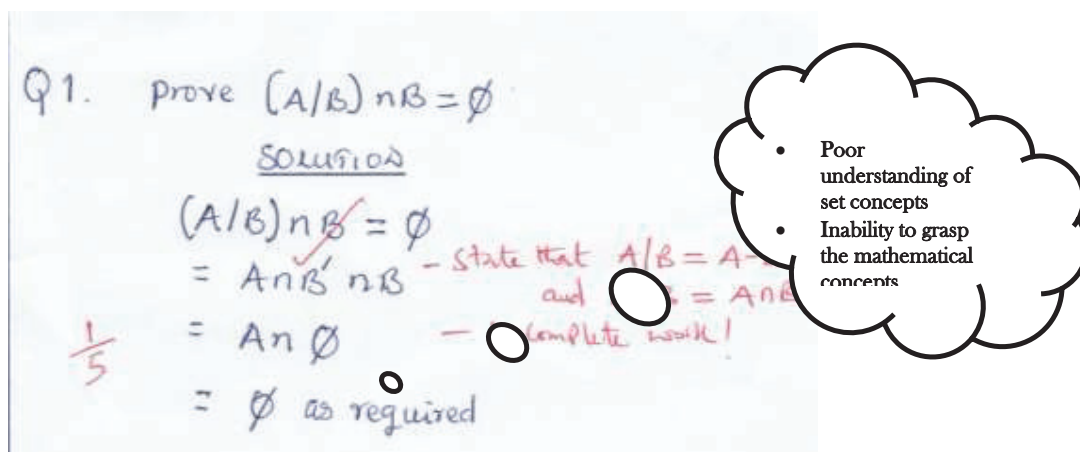 Q1. Prove (A/B) ∩ B = ∅
SOLUTION
(A/B) ∩ B = ∅
= A ∩ B' ∩ B
- State that A/B = A-
and = A ∩ B
= A ∩ ∅
- complete work!
1/5
= ∅ as required
• Poor
understanding of
set concepts
• Inability to grasp
the mathematical
concepts